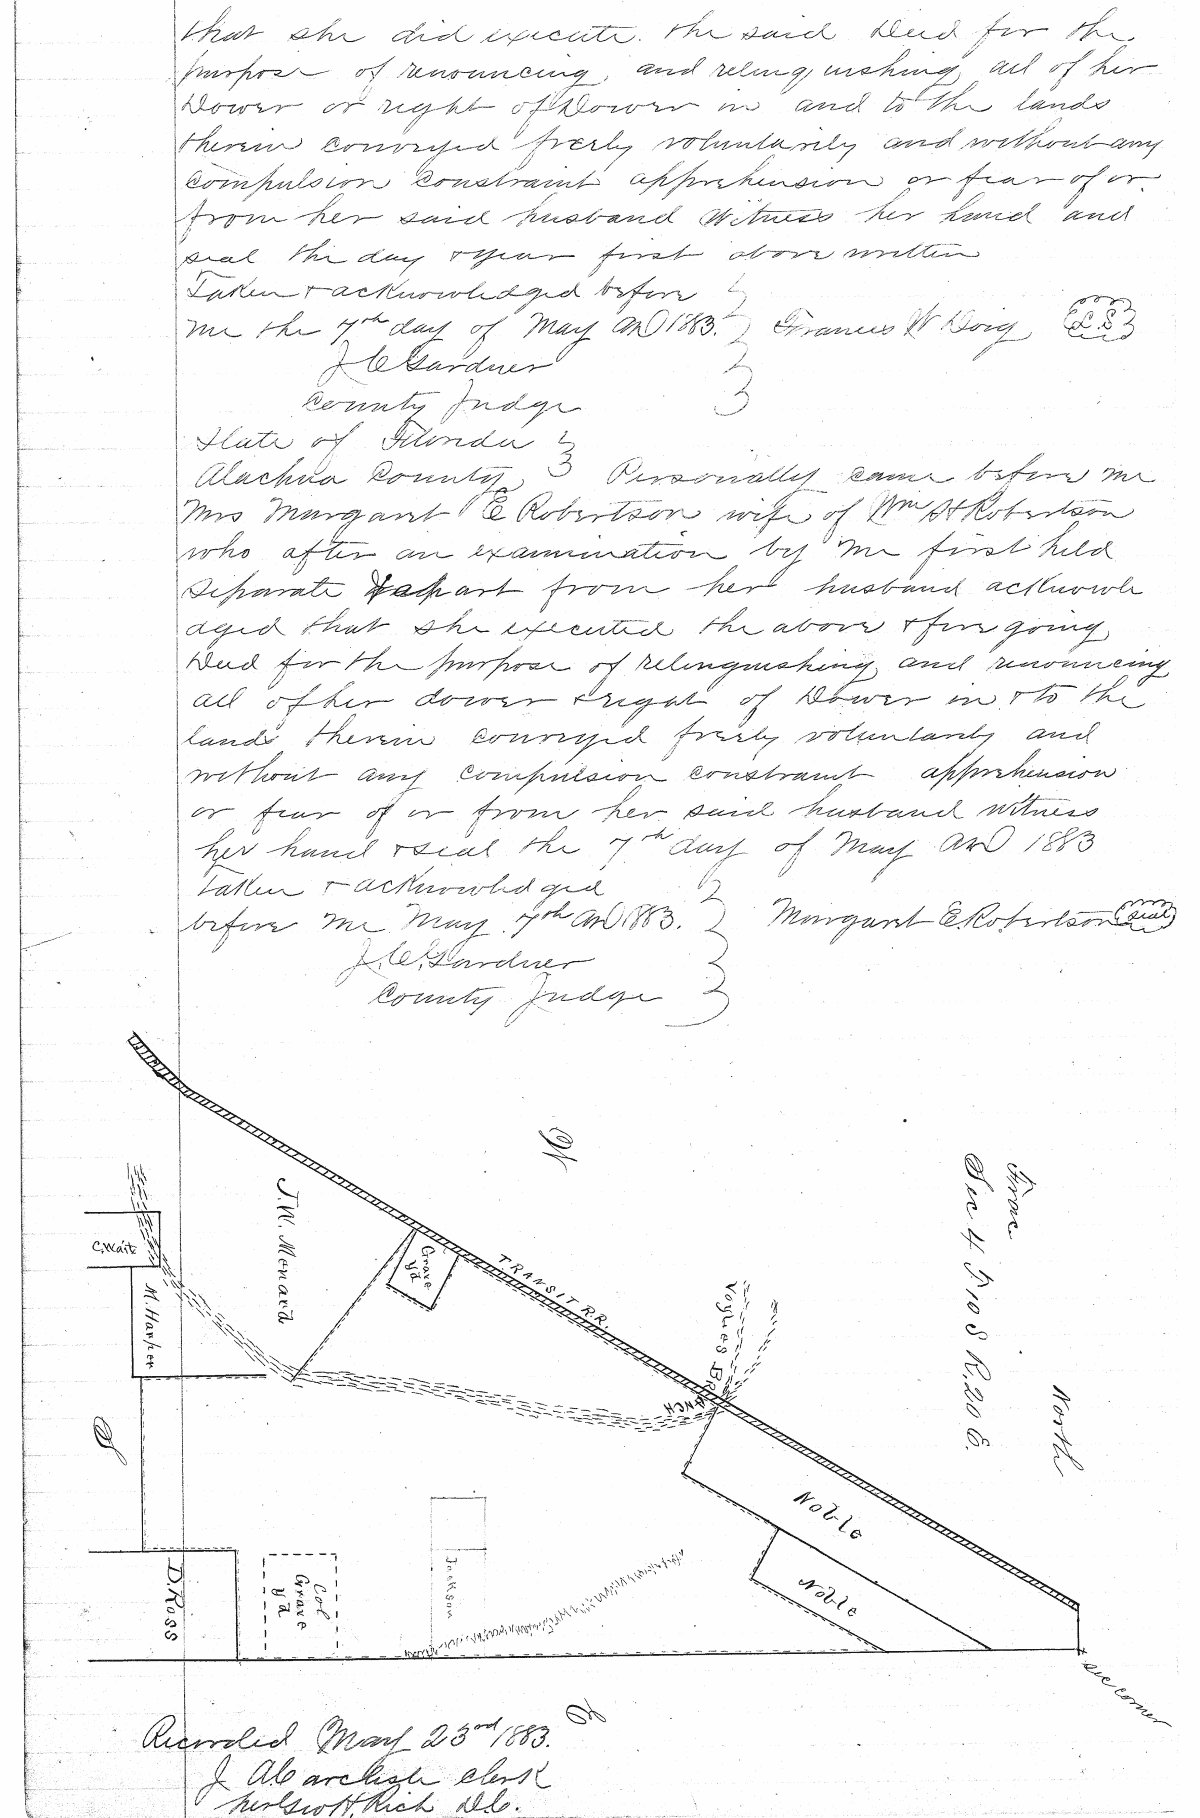 that she did execute. the said Deed for the
purpose of renouncing, and relinquishing all of her
Dower or right of Dower in and to the lands
therein conveyed freely voluntarily and without any
compulsion constraint apprehension or fear of or
from her said husband Witness her hand and
seal the day & year first above written
Taken & acknowledged before
me the 7th day of May AD 1883. Frances W Doig L.S
J C Gardner
County Judge
State of Florida
Alachua County Personally came before me
Mrs Margaret E Robertson wife of Wm H Robertson
who after an examination by me first held
separate & apart from her husband acknowle
dged that she executed the above & fore going
Deed for the purpose of relinquishing and renouncing
all of her dower & right of Dower in & to the
lands therein conveyed freely voluntarily and
without any compulsion constraint apprehension
or fear of or from her said husband witness
her hand & seal the 7th day of May AD 1883
Taken & acknowledged
before me May 7th AD 1883. Margaret E. Robertson seal
J. C. Gardner
County Judge
Frac
Sec 4 T 10 S R. 20 E.
North
J. W. Menard
C. Wait
M. Harper
Grave
yd
TRANSIT R.R.
Vogues BRANCH
Noble
Noble
D. Ross
Col
Grave
yd
Jackson
Sec corner
Recorded May 23rd 1883.
clerk
Rich D.C.